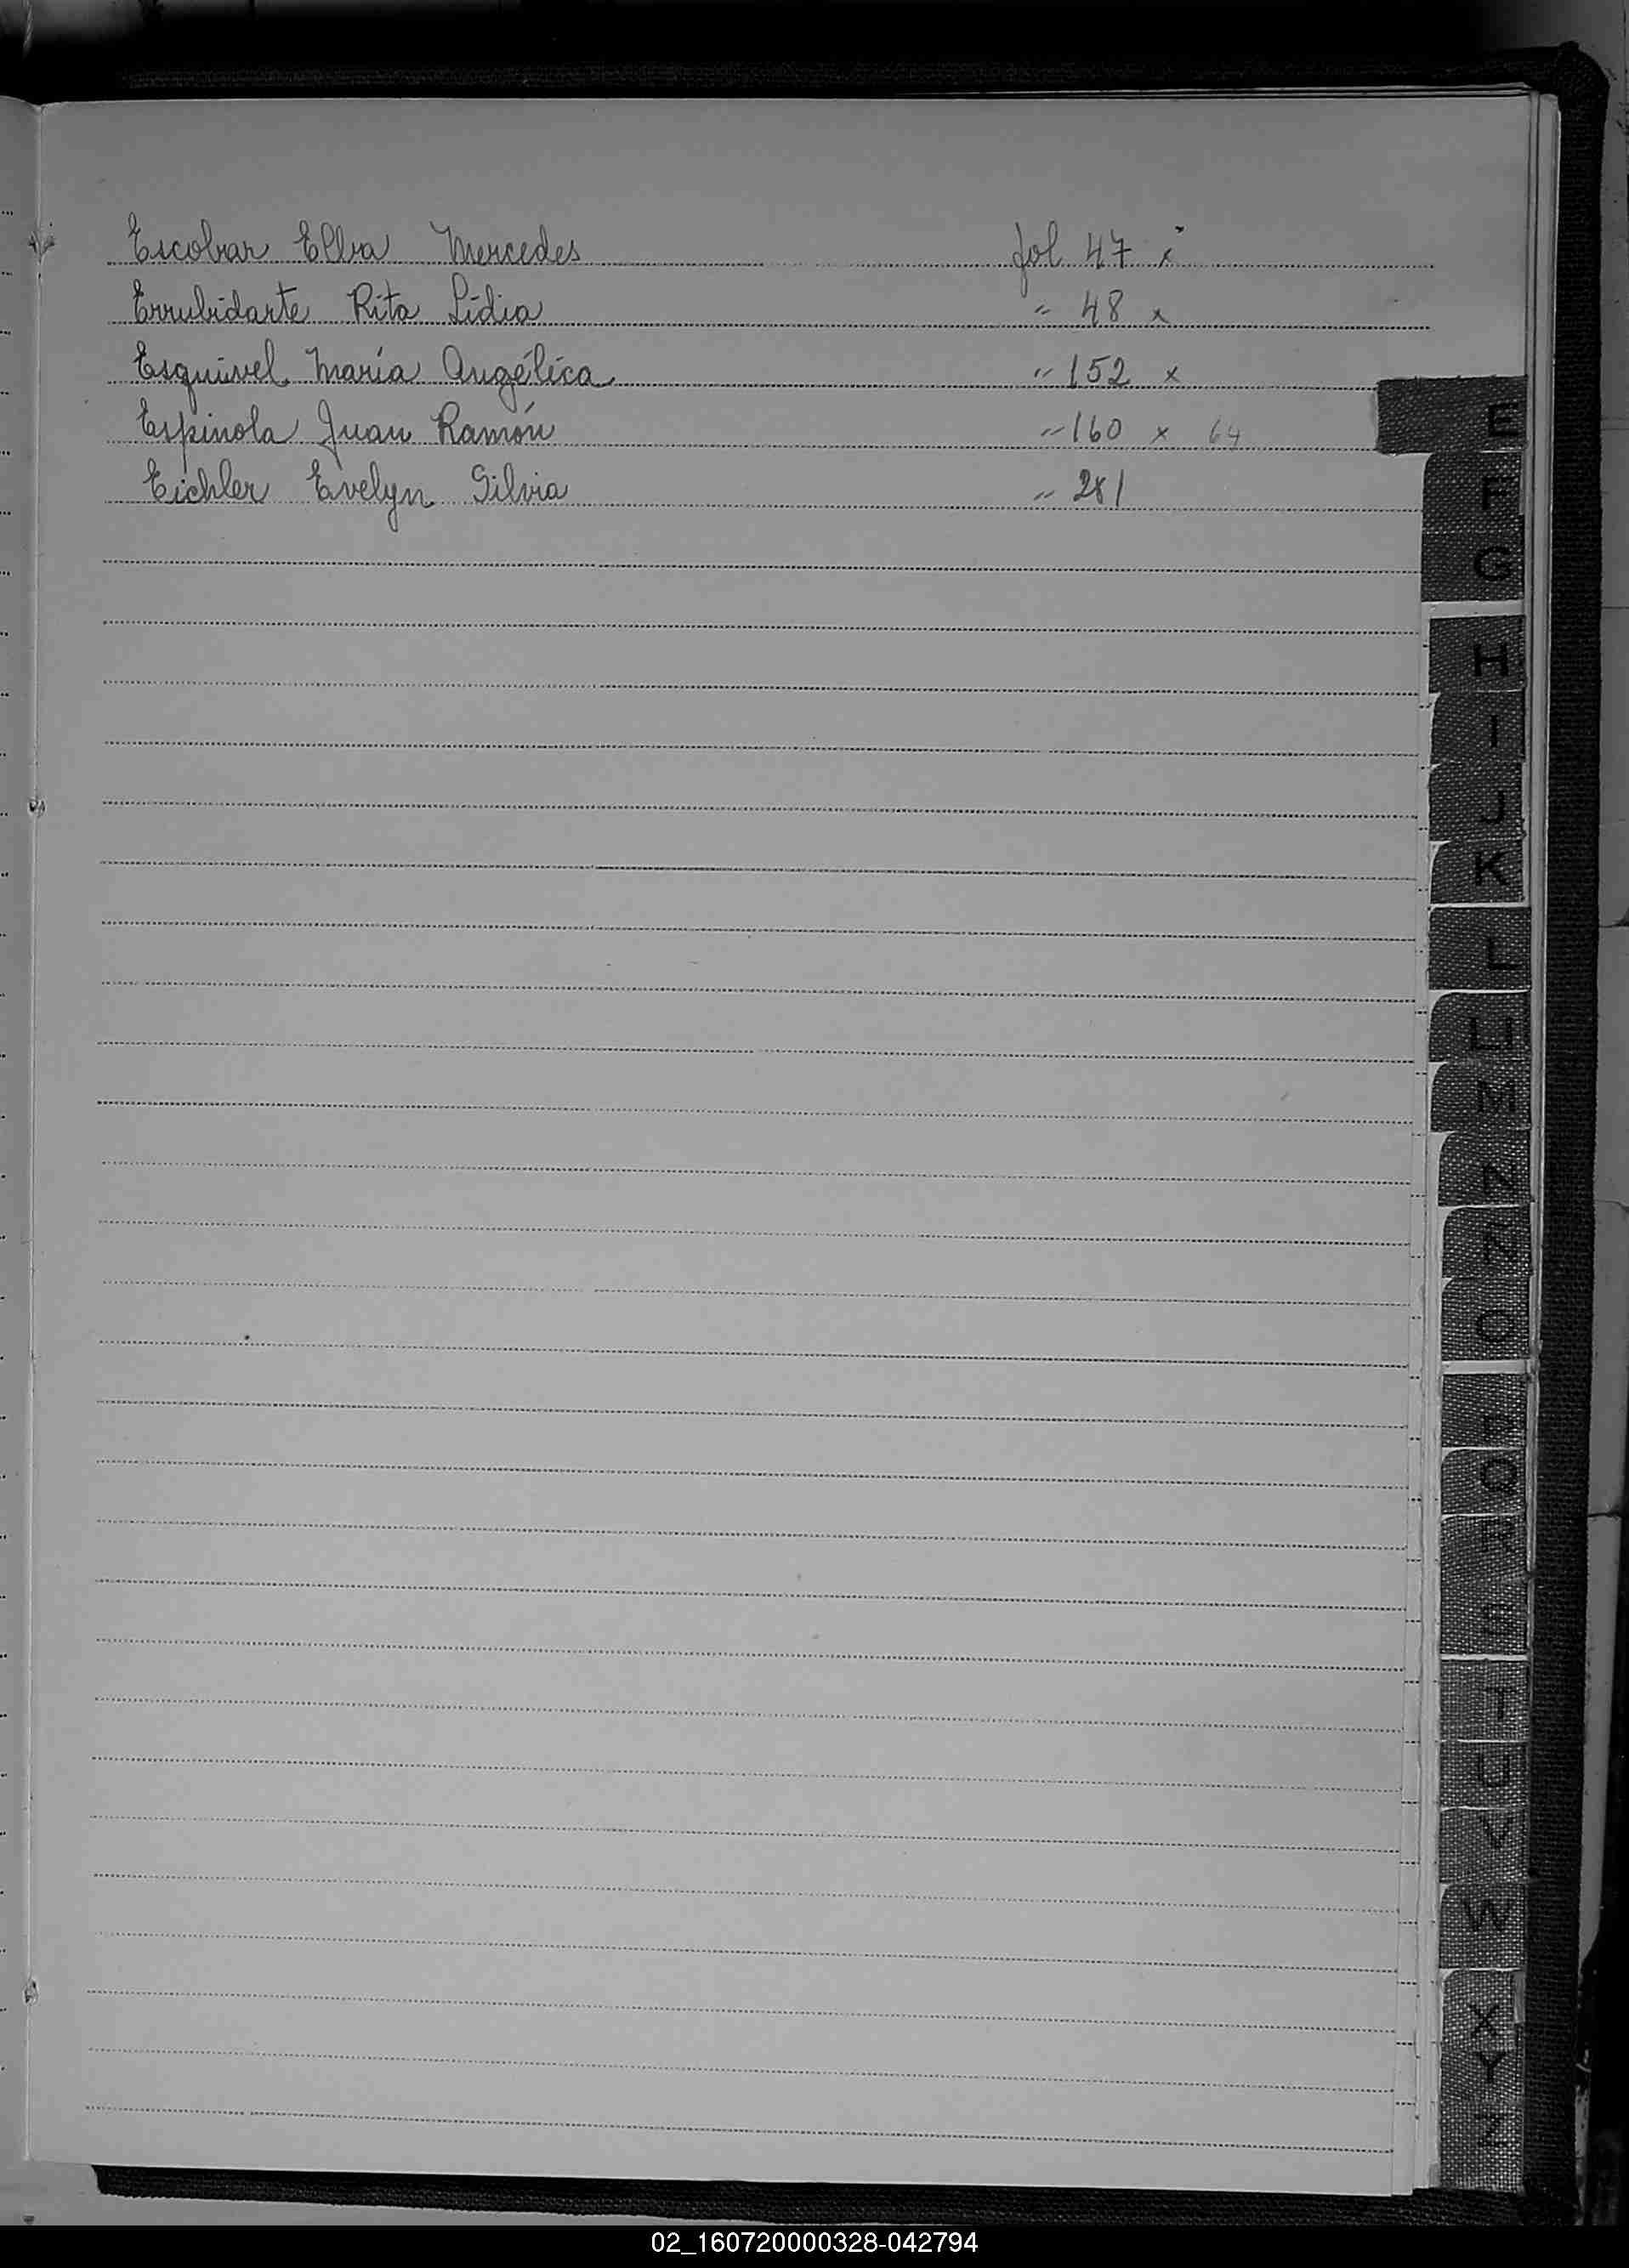 Escobar Elba Mercedes fol 47 x
Errubidarte Rita Lidia " 48 x
Esquivel María Angélica " 152 x
Espinola Juan Ramón " 160 x 64
Eichler Evelyn Silvia " 281
E
F
G
H
I
J
K
L
LL
M
N
Ñ
O
P
Q
R
S
T
U
V
W
X
Y
Z
02_160720000328-042794